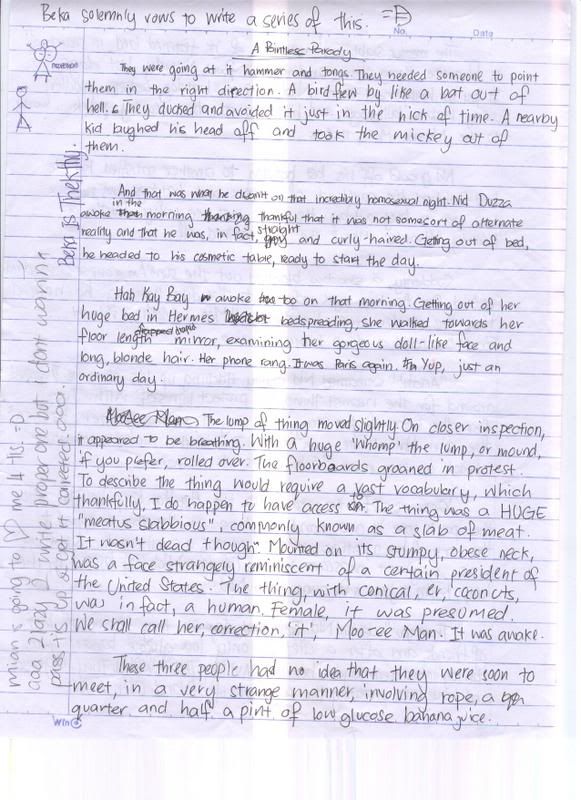 Beka solemnly vows to write a series of this. =D
No.
Date
A Pointless Parody
They were going at it hammer and tongs. They needed someone to point
them in the right direction. A bird flew by like a bat out of
hell. They ducked and avoided it just in the nick of time. A nearby
kid laughed his head off and took the mickey out of
them.
And that was what he dreamt on that incredibly homosexual night. Nid Duzza
awoke in the morning thankful that it was not some sort of alternate
reality and that he was, in fact, straight and curly-haired. Getting out of bed,
he headed to his cosmetic table, ready to start the day.
Hah Kay Bay awoke too on that morning. Getting out of her
huge bed in Hermes bedspreading, she walked towards her
floor length mirror, examining her gorgeous doll-like face and
long, blonde hair. Her phone rang. It was Paris again. Yup, just an
ordinary day.
The lump of thing moved slightly. On closer inspection,
it appeared to be breathing. With a huge 'Whomp' the lump, or mound,
if you prefer, rolled over. The floorboards groaned in protest.
To describe the thing would require a vast vocabulary, which
thankfully, I do happen to have access to. The thing was a HUGE
"meatus slabbious", commonly known as a slab of meat.
It wasn't dead though. Mounted on its stumpy, obese neck,
was a face strangely reminiscent of a certain president of
the United States. The thing, with conical, er, coconuts,
was in fact, a human. Female, it was presumed.
We shall call her, correction, 'it', Moo-ee Man. It was awake.
These three people had no idea that they were soon to
meet, in a very strange manner, involving rope, a
quarter, and half a pint of low glucose banana juice.
Beka Is The
mian is going to ♡ me 4 tis. =D
aaa 2 lazy 2 write proper one but i dont wanna
pass tis up & get it corrected. aaa.